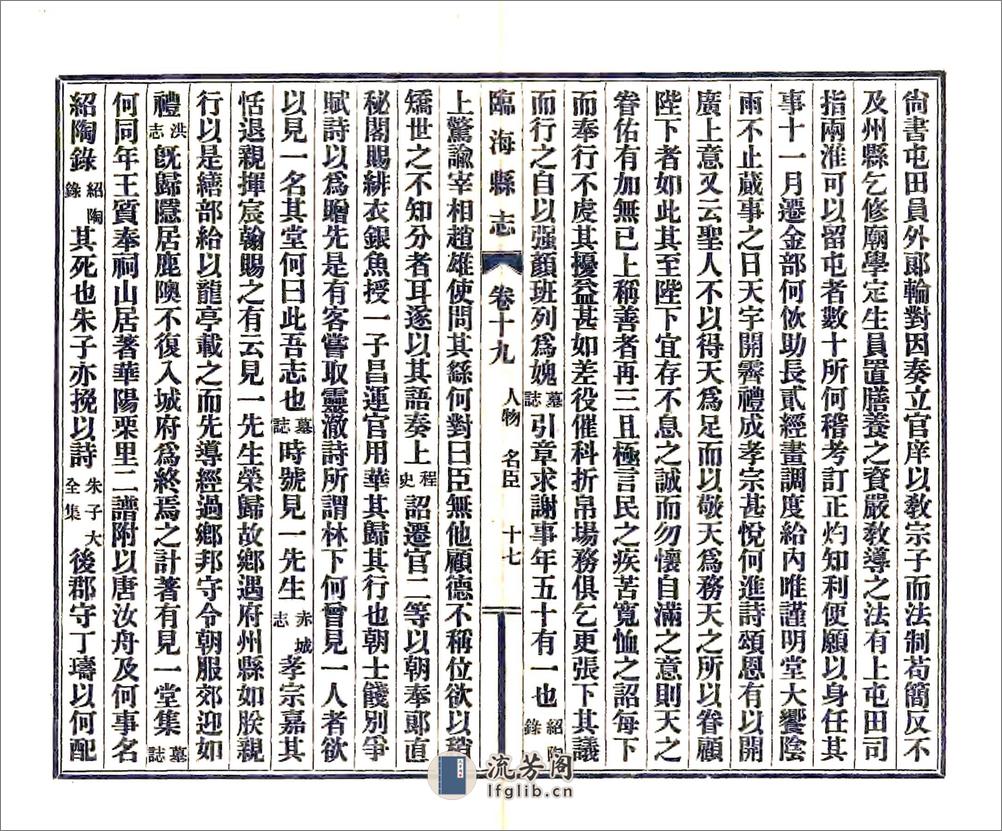 尙書屯田員外郞輪對因奏立官庠以敎宗子而法制苟簡反不
及州縣乞修廟學定生員置膳養之資嚴敎導之法有上屯田司
指兩淮可以留屯者數十所何稽考訂正灼知利便願以身任其
事十一月遷金部何攸助長貳經畫調度給內唯謹明堂大饗陰
雨不止蕆事之日天宇開霽禮成孝宗甚悅何進詩頌恩有以開
廣上意又云聖人不以得天爲足而以敬天爲務天之所以眷顧
陛下者如此其至陛下宜存不息之誠而勿懷自滿之意則天之
眷佑有加無已上稱善者再三且極言民之疾苦寬恤之詔每下
而奉行不虔其擾益甚如差役催科折帛場務俱乞更張下其議
而行之自以强顏班列爲媿墓誌引章求謝事年五十有一也紹陶錄
臨海縣志 卷十九 人物 名臣 十七
上驚諭宰相趙雄使問其繇何對曰臣無他顧德不稱位欲以稍
矯世之不知分者耳遂以其語奏上程史詔遷官二等以朝奉郞直
秘閣賜緋衣銀魚授一子昌運官用華其歸其行也朝士餞別爭
賦詩以爲贈先是有客嘗取靈澈詩所謂林下何曾見一人者欲
以見一名其堂何曰此吾志也墓誌時號見一先生赤城志孝宗嘉其
恬退親揮宸翰賜之有云見一先生榮歸故鄕遇府州縣如朕親
行以是繕部給以龍亭載之而先導經過鄕邦守令朝服郊迎如
禮洪志旣歸隱居鹿隩不復入城府爲終焉之計著有見一堂集墓誌
何同年王質奉祠山居著華陽栗里二譜附以唐汝舟及何事名
紹陶錄紹陶錄其死也朱子亦挽以詩朱子大全集後郡守丁璹以何配
流芳阁
lfglib.cn